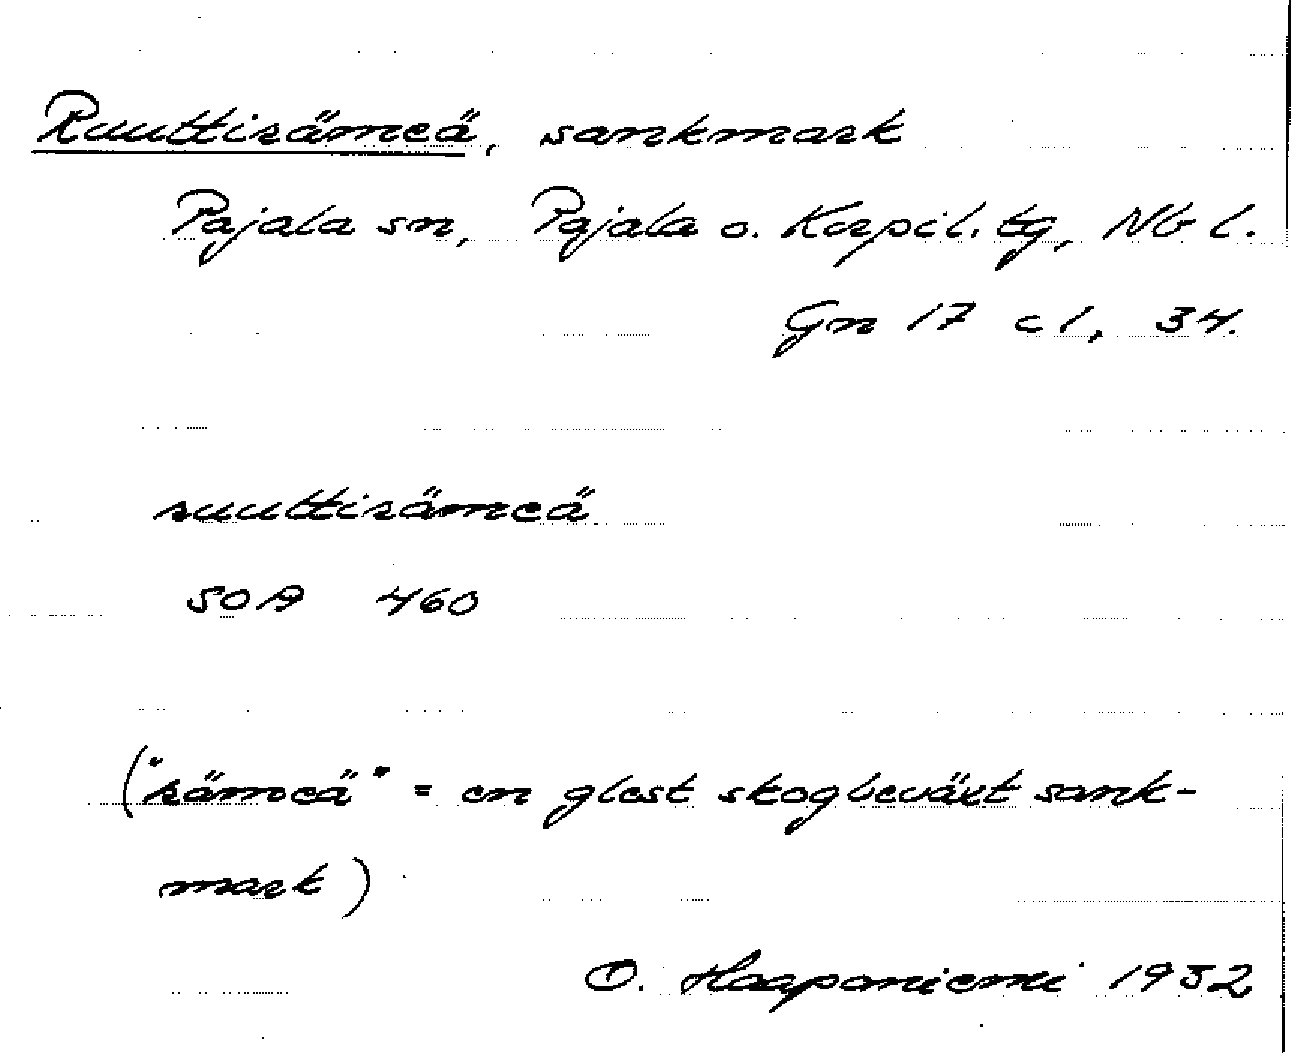 Ruuttirämeä, sankmark
Pajala sn, Pajala o. Korpil. tg, Nb l.
Gn 17 c 1, 34.
ruuttirämeä
SOA 460
("rämeä" = en glest skogbeväxt sank-
mark)
O. Haapaniemi 1932